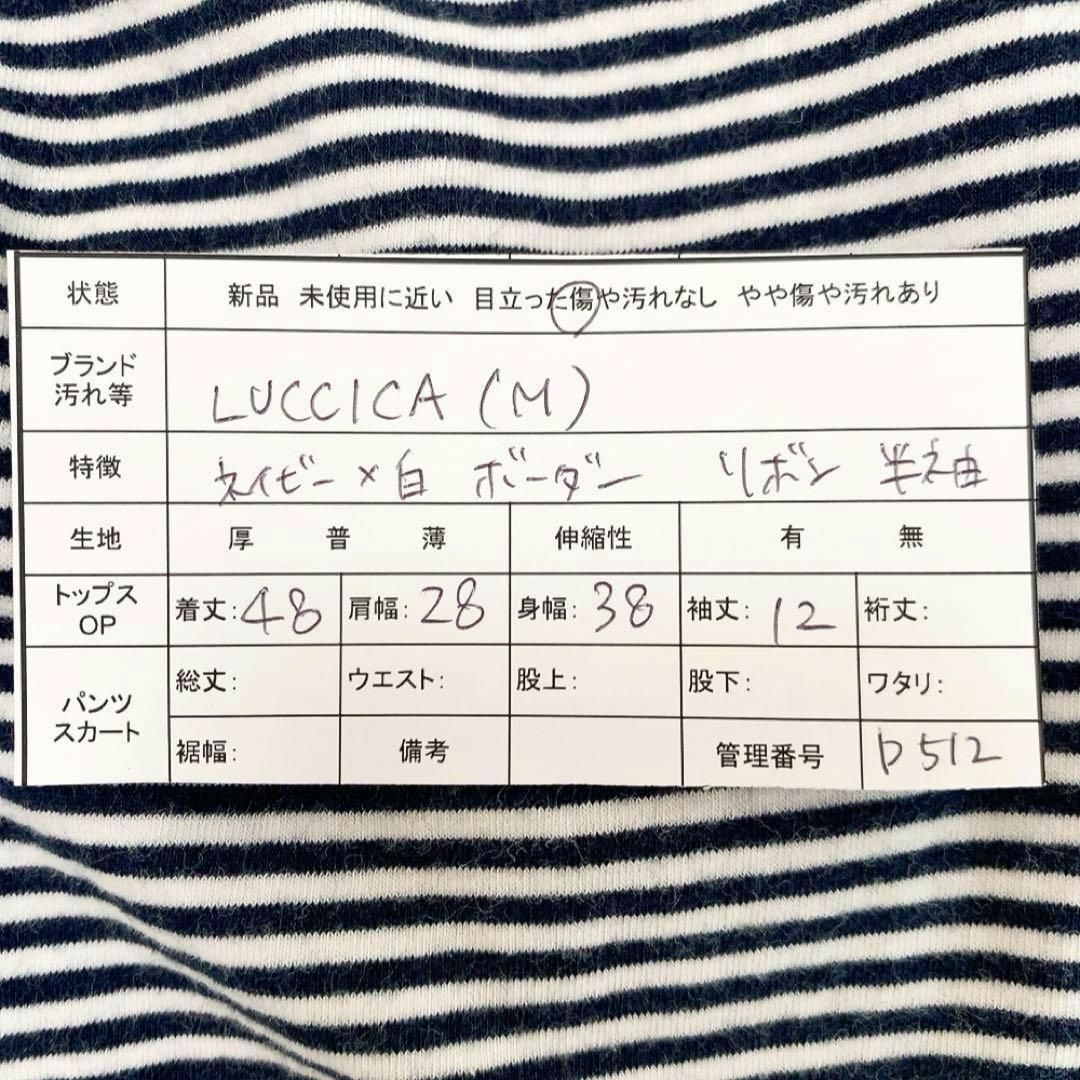 状態 新品 未使用に近い 目立った傷や汚れなし やや傷や汚れあり
ブランド
汚れ等
LUCCICA (M)
特徴 ネイビー×白 ボーダー リボン 半袖
生地 厚 普 薄 伸縮性 有 無
トップス
OP
着丈:48 肩幅:28 身幅:38 袖丈:12 裄丈:
パンツ
スカート
総丈: ウエスト: 股上: 股下: ワタリ:
裾幅: 備考 管理番号 b512